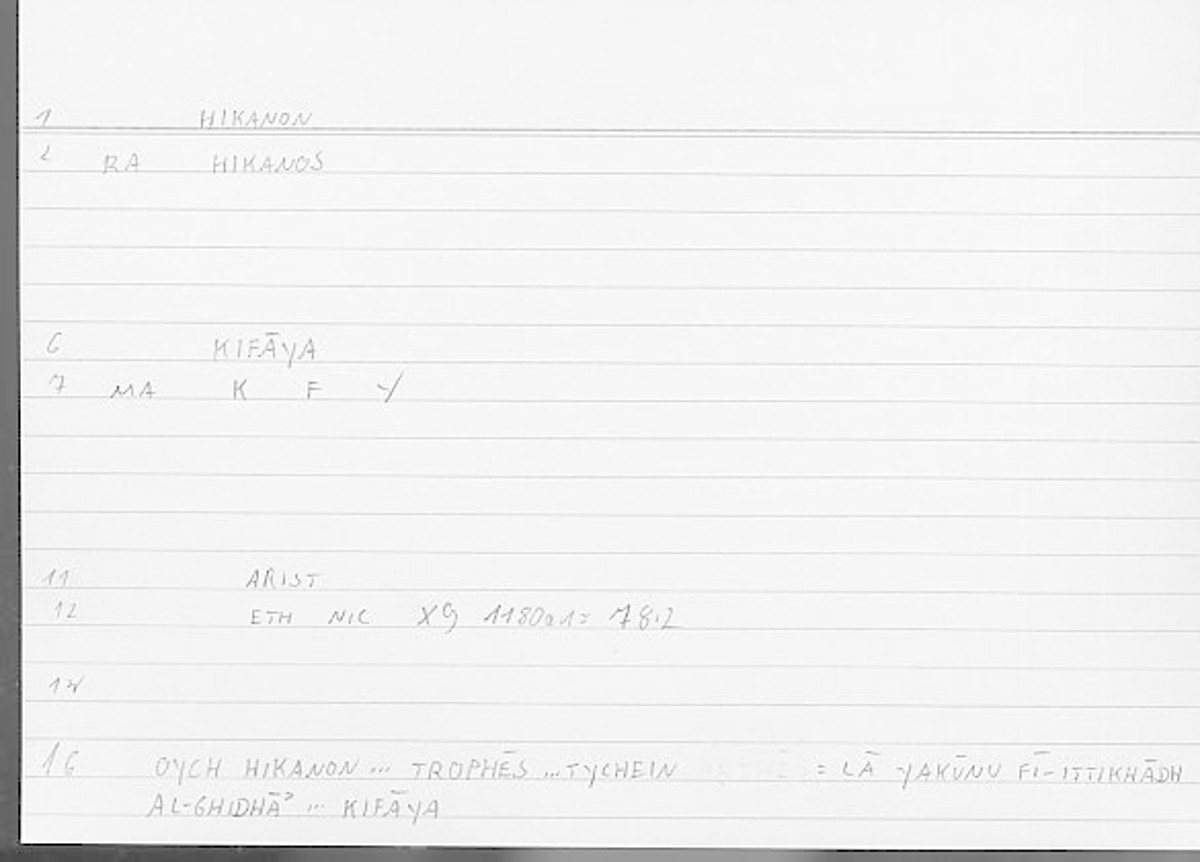 1 HIKANON
2 RA HIKANOS
6 KIFĀYA
7 MA K F Y
11 ARIST
12 ETH NIC X9 1180a1= 78.2
14
16 OYCH HIKANON ... TROPHĒS ... TYCHEIN = LĀ YAKŪNU FĪ-ITTIKHĀDH
AL-GHIDHĀʾ ... KIFĀYA